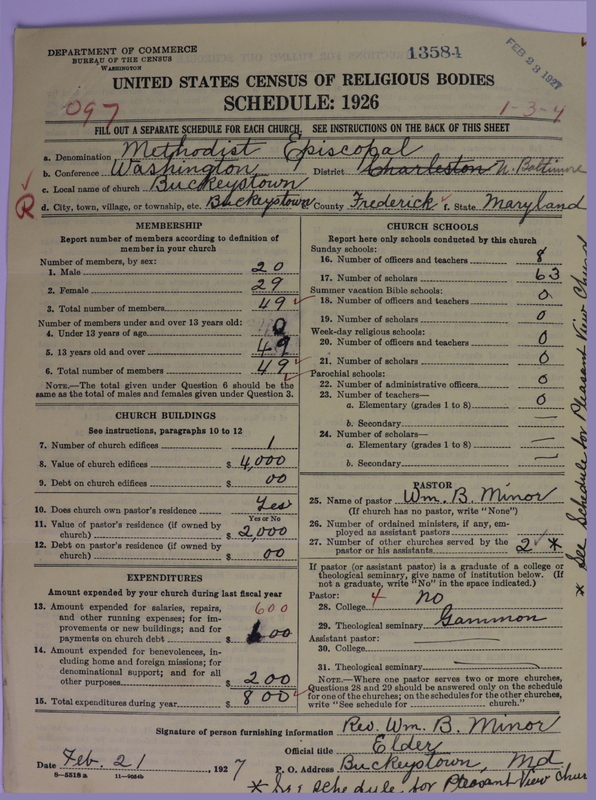 DEPARTMENT OF COMMERCE
BUREAU OF THE CENSUS
WASHINGTON
13584
FEB 23 1927
UNITED STATES CENSUS OF RELIGIOUS BODIES
SCHEDULE: 1926
097
1-3-4
FILL OUT A SEPARATE SCHEDULE FOR EACH CHURCH. SEE INSTRUCTIONS ON THE BACK OF THIS SHEET
a. Denomination Methodist Episcopal
b. Conference Washington District Charleston N. Baltimore
c. Local name of church Buckeystown
R
d. City, town, village, or township, etc. Buckeystown e. County Frederick f. State Maryland
MEMBERSHIP
Report number of members according to definition of member in your church
Number of members, by sex:
1. Male 20
2. Female 29
3. Total number of members 49
Number of members under and over 13 years old:
4. Under 13 years of age 0
5. 13 years old and over 49
6. Total number of members 49
NOTE.—The total given under Question 6 should be the
same as the total of males and females given under Question 3.
CHURCH BUILDINGS
See instructions, paragraphs 10 to 12
7. Number of church edifices 1
8. Value of church edifices $ 4,000
9. Debt on church edifices $ 00
10. Does church own pastor's residence Yes
Yes or No
11. Value of pastor's residence (if owned by
church) $ 2,000
12. Debt on pastor's residence (if owned by
church) $ 00
EXPENDITURES
Amount expended by your church during last fiscal year
13. Amount expended for salaries, repairs, 600
and other running expenses; for im-
provements or new buildings; and for
payments on church debt $ 600
14. Amount expended for benevolences, in-
cluding home and foreign missions; for
denominational support; and for all
other purposes $ 200
15. Total expenditures during year $ 800
CHURCH SCHOOLS
Report here only schools conducted by this church
Sunday schools:
16. Number of officers and teachers 8
17. Number of scholars 63
Summer vacation Bible schools:
18. Number of officers and teachers 0
19. Number of scholars 0
Week-day religious schools:
20. Number of officers and teachers 0
21. Number of scholars 0
Parochial schools:
22. Number of administrative officers 0
23. Number of teachers— 0
a. Elementary (grades 1 to 8)
b. Secondary
24. Number of scholars—
a. Elementary (grades 1 to 8)
b. Secondary
PASTOR
25. Name of pastor Wm. B. Minor
(If church has no pastor, write "None")
26. Number of ordained ministers, if any, em-
ployed as assistant pastors
27. Number of other churches served by the
pastor or his assistants 2 *
If pastor (or assistant pastor) is a graduate of a college or
theological seminary, give name of institution below. (If
not a graduate, write "No" in the space indicated.)
Pastor: 4
28. College No
29. Theological seminary Gammon
Assistant pastor:
30. College
31. Theological seminary
NOTE.—Where one pastor serves two or more churches,
Questions 28 and 29 should be answered only on the schedule
for one of the churches; on the schedules for the other churches,
write "See schedule for church."
Signature of person furnishing information Rev. Wm. B. Minor
Official title Elder
Date Feb. 21, 1927 P. O. Address Buckeystown, Md
* See schedule for Pleasant View Chur
* See Schedule for Pleasant View Church